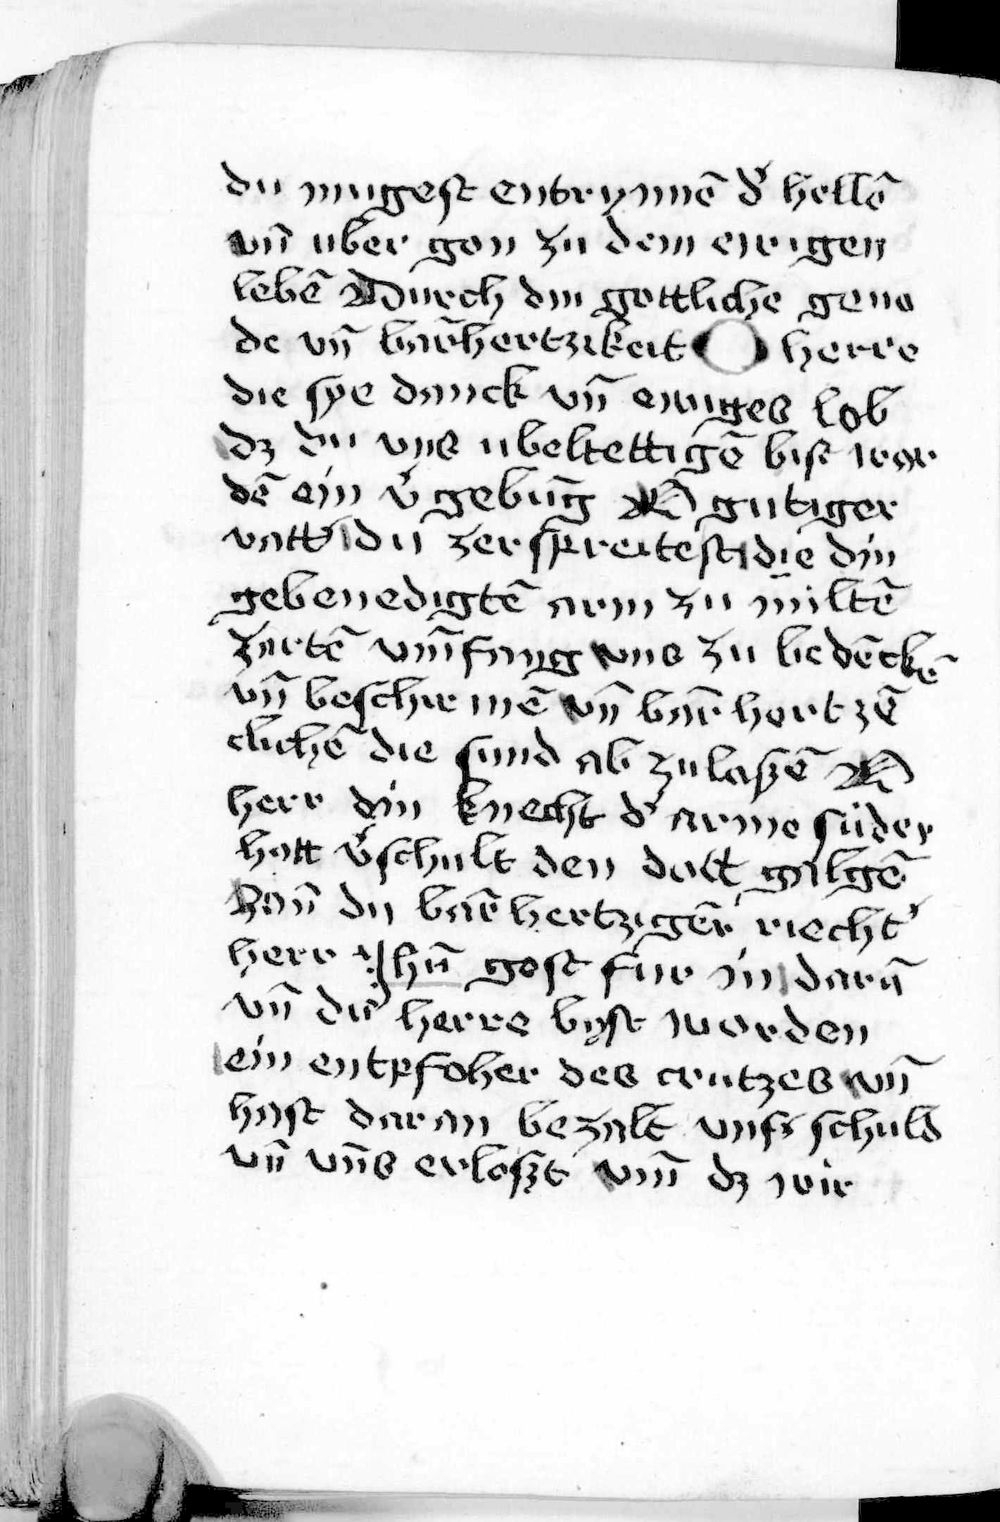 du mugest entrynnē d' hellē
vn̄ uber gon zu dem ewigen
lebē Durch din gottliche gena
de vn̄ barm̄hertzikeit O herre
die sye danck vn̄ ewiges lob
dz du vns ubeltettigē bist wor
dē ein v'gebūg O gutiger
vatt' du zerspreitest die din
gebenedigtē arm zu miltē
zartē vm̄fang vns zu bedēckē
vn̄ beschirmē vn̄ barm̄hertzē
clichē die sund ab zulaszē O
herr din knecht d' arme sūder
hatt v'schult den dott galgē
du bar̄hertzigēr riecht'
herr Jhū gost fur in darā
vn̄ du herre byst worden
ein entpfoher des crutzes vn̄
hast daran bezalt vnsz schuld
vn̄ vn̄s erloszt vm̄ dz wir